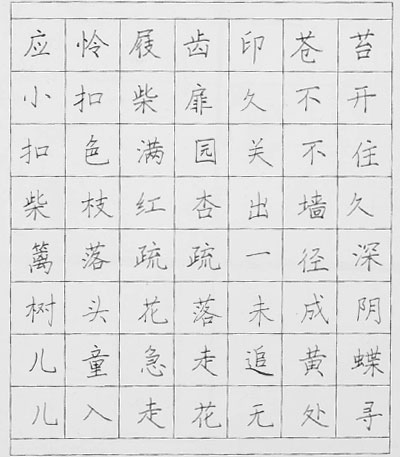 应怜屐齿印苍苔
小扣柴扉久不开
扣色满园关不住
柴枝红杏出墙久
篱落疏疏一径深
树头花落未成阴
儿童急走追黄蝶
儿入走花无处寻